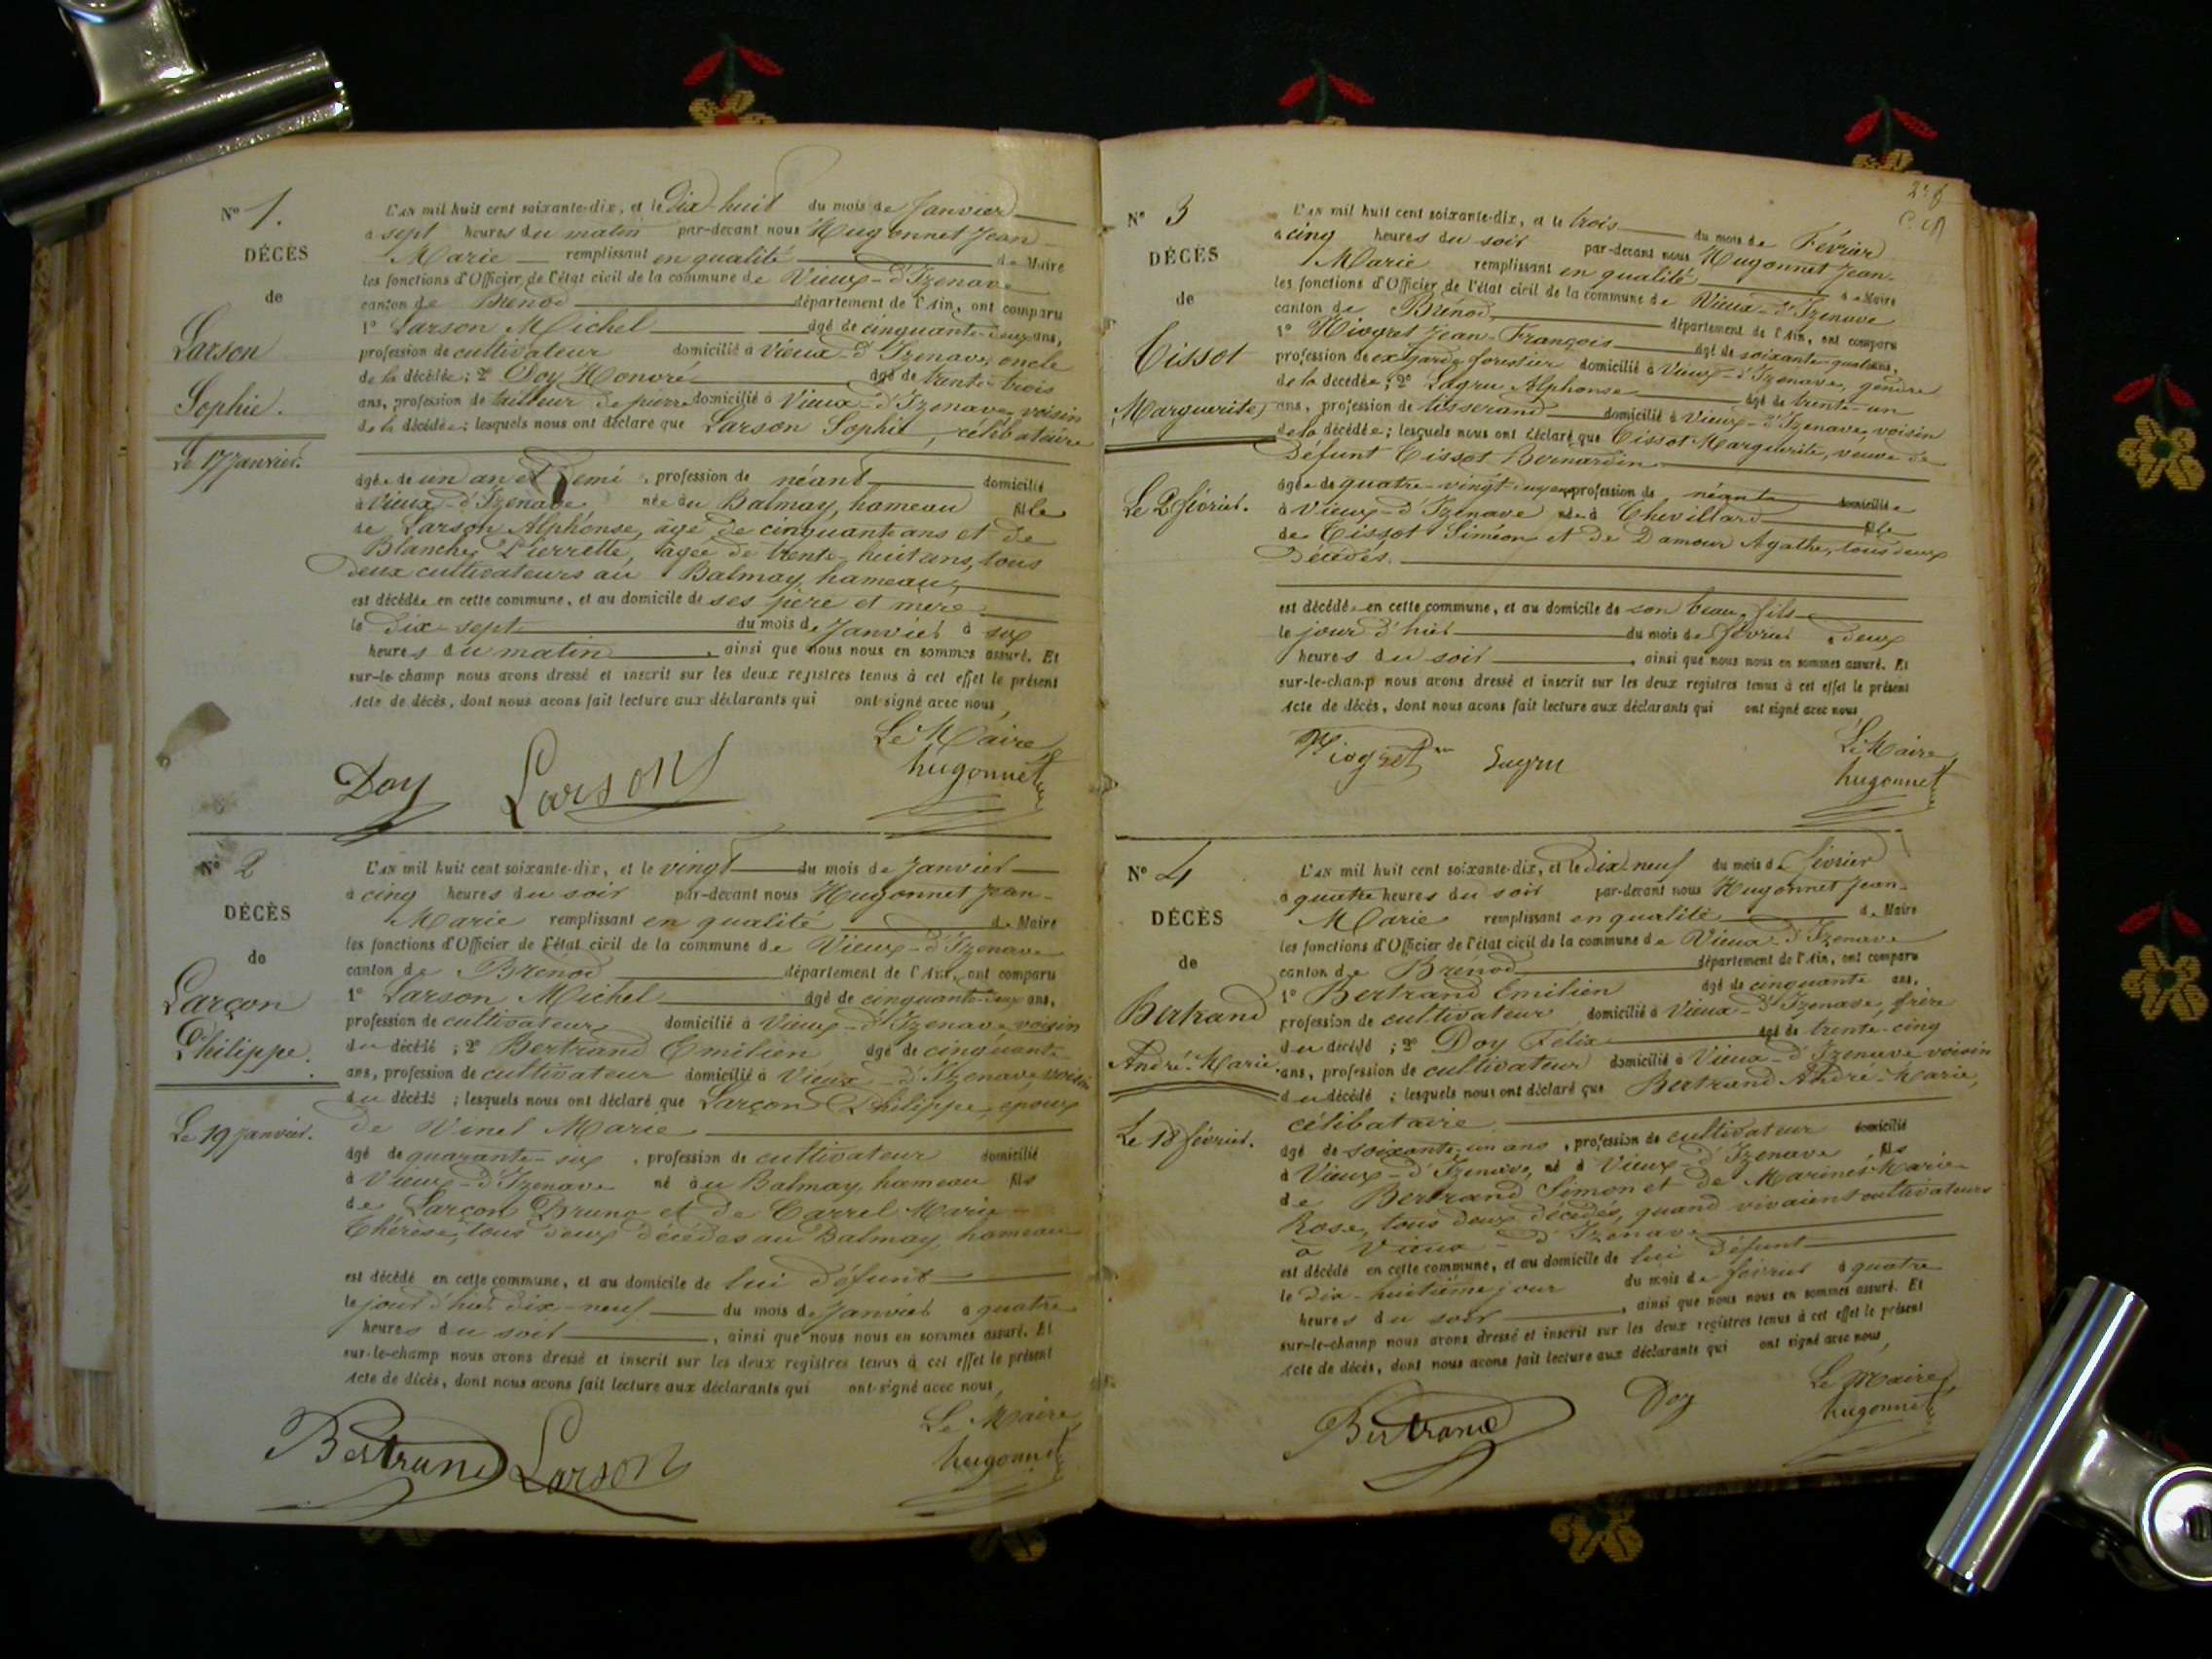 N° 1.
DÉCÈS
de
Larson
Sophie.
Le 17 Janvier.
L'AN mil huit cent soixante-dix, et le Dix-huit du mois de Janvier
à sept heures du matin par-devant nous Hugonnet Jean
Marie remplissant en qualité de Maire
les fonctions d'Officier de l'état civil de la commune de Vieux-d'Izenave
canton de Brénod département de l'Ain, ont comparu
1° Larson Michel âgé de cinquante-deux ans,
profession de cultivateur domicilié à Vieux-d'Izenave, oncle
de la décédée ; 2° Doy Honoré âgé de trente-trois
ans, profession de tailleur de pierre domicilié à Vieux-d'Izenave, voisin
de la décédée ; lesquels nous ont déclaré que Larson Sophie, célibataire
âgée de un an et Demi, profession de néant domicilié
à Vieux-d'Izenave née au Balmay, hameau fille
de Larson Alphonse, âgé de cinquante ans et de
Blanche Pierrette, âgée de trente-huit ans, tous
deux cultivateurs au Balmay, hameau,
est décédée en cette commune, et au domicile de ses père et mère
le dix-sept du mois de Janvier à six
heures du matin, ainsi que nous nous en sommes assuré. Et
sur-le-champ nous avons dressé et inscrit sur les deux registres tenus à cet effet le présent
Acte de décès, dont nous avons fait lecture aux déclarants qui ont signé avec nous,
Le Maire
Doy Larson hugonnet
N° 2
DÉCÈS
de
Larçon
Philippe.
Le 19 Janvier.
L'AN mil huit cent soixante-dix, et le vingt du mois de Janvier
à cinq heures du soir par-devant nous Hugonnet Jean-
Marie remplissant en qualité de Maire
les fonctions d'Officier de l'état civil de la commune de Vieux-d'Izenave
canton de Brénod département de l'Ain, ont comparu
1° Larson Michel âgé de cinquante-deux ans,
profession de cultivateur domicilié à Vieux-d'Izenave voisin
du décédé ; 2° Bertrand Emilien âgé de cinquante
ans, profession de cultivateur domicilié à Vieux-d'Izenave, voisin
du décédé ; lesquels nous ont déclaré que Larçon Philippe, époux
de Vinel Marie
âgé de quarante-six, profession de cultivateur domicilié
à Vieux-d'Izenave né au Balmay, hameau fils
de Larçon Bruno et de Carrel Marie-
Thérèse, tous deux décédés au Balmay, hameau
est décédé en cette commune, et au domicile de lui défunt
le jour d'hier dix-neuf du mois de Janvier à quatre
heures du soir, ainsi que nous nous en sommes assuré. Et
sur-le-champ nous avons dressé et inscrit sur les deux registres tenus à cet effet le présent
Acte de décès, dont nous avons fait lecture aux déclarants qui ont signé avec nous,
Le Maire
Bertrand Larson hugonnet
N° 3
DÉCÈS
de
Tissot
Marguerite,
Le 2 février.
L'AN mil huit cent soixante-dix, et le trois du mois de Février
à cinq heures du soir par-devant nous Hugonnet Jean-
Marie remplissant en qualité de Maire
les fonctions d'Officier de l'état civil de la commune de Vieux-d'Izenave
canton de Brénod département de l'Ain, ont comparu
1° Jean-François âgé de soixante-quatre ans,
profession de ex garde forestier domicilié à Vieux-d'Izenave, gendre
de la décédée ; 2° Alphonse âgé de trente-un
ans, profession de tisserand domicilié à Vieux-d'Izenave, voisin
de la décédée ; lesquels nous ont déclaré que Tissot Marguerite, veuve de
défunt Tissot Bernardin
âgée de quatre-vingt-deux ans profession de néante domiciliée
à Vieux-d'Izenave née à Chevillard fille
de Tissot Siméon et de Damour Agathe, tous deux
décédés.
est décédée en cette commune, et au domicile de son beau-fils
le jour d'hier du mois de février à deux
heures du soir, ainsi que nous nous en sommes assuré. Et
sur-le-champ nous avons dressé et inscrit sur les deux registres tenus à cet effet le présent
Acte de décès, dont nous avons fait lecture aux déclarants qui ont signé avec nous,
Le Maire
hugonnet
N° 4
DÉCÈS
de
Bertrand
André-Marie.
Le 18 février.
L'AN mil huit cent soixante-dix, et le dix-neuf du mois de février
à quatre heures du soir par-devant nous Hugonnet Jean-
Marie remplissant en qualité de Maire
les fonctions d'Officier de l'état civil de la commune de Vieux-d'Izenave
canton de Brénod département de l'Ain, ont comparu
1° Bertrand Emilien âgé de cinquante ans,
profession de cultivateur domicilié à Vieux-d'Izenave, frère
du décédé ; 2° Doy Félix âgé de trente-cinq
ans, profession de cultivateur domicilié à Vieux-d'Izenave voisin
du décédé ; lesquels nous ont déclaré que Bertrand André-Marie,
célibataire
âgé de soixante-un ans, profession de cultivateur domicilié
à Vieux-d'Izenave, né à Vieux-d'Izenave fils
de Bertrand Simon et de Marinet Marie-
Rose, tous deux décédés, quand vivaient cultivateurs
à Vieux-d'Izenave
est décédé en cette commune, et au domicile de lui défunt
le dix-huitième jour du mois de février à quatre
heures du soir, ainsi que nous nous en sommes assuré. Et
sur-le-champ nous avons dressé et inscrit sur les deux registres tenus à cet effet le présent
Acte de décès, dont nous avons fait lecture aux déclarants qui ont signé avec nous,
Le Maire,
Bertrand Doy hugonnet